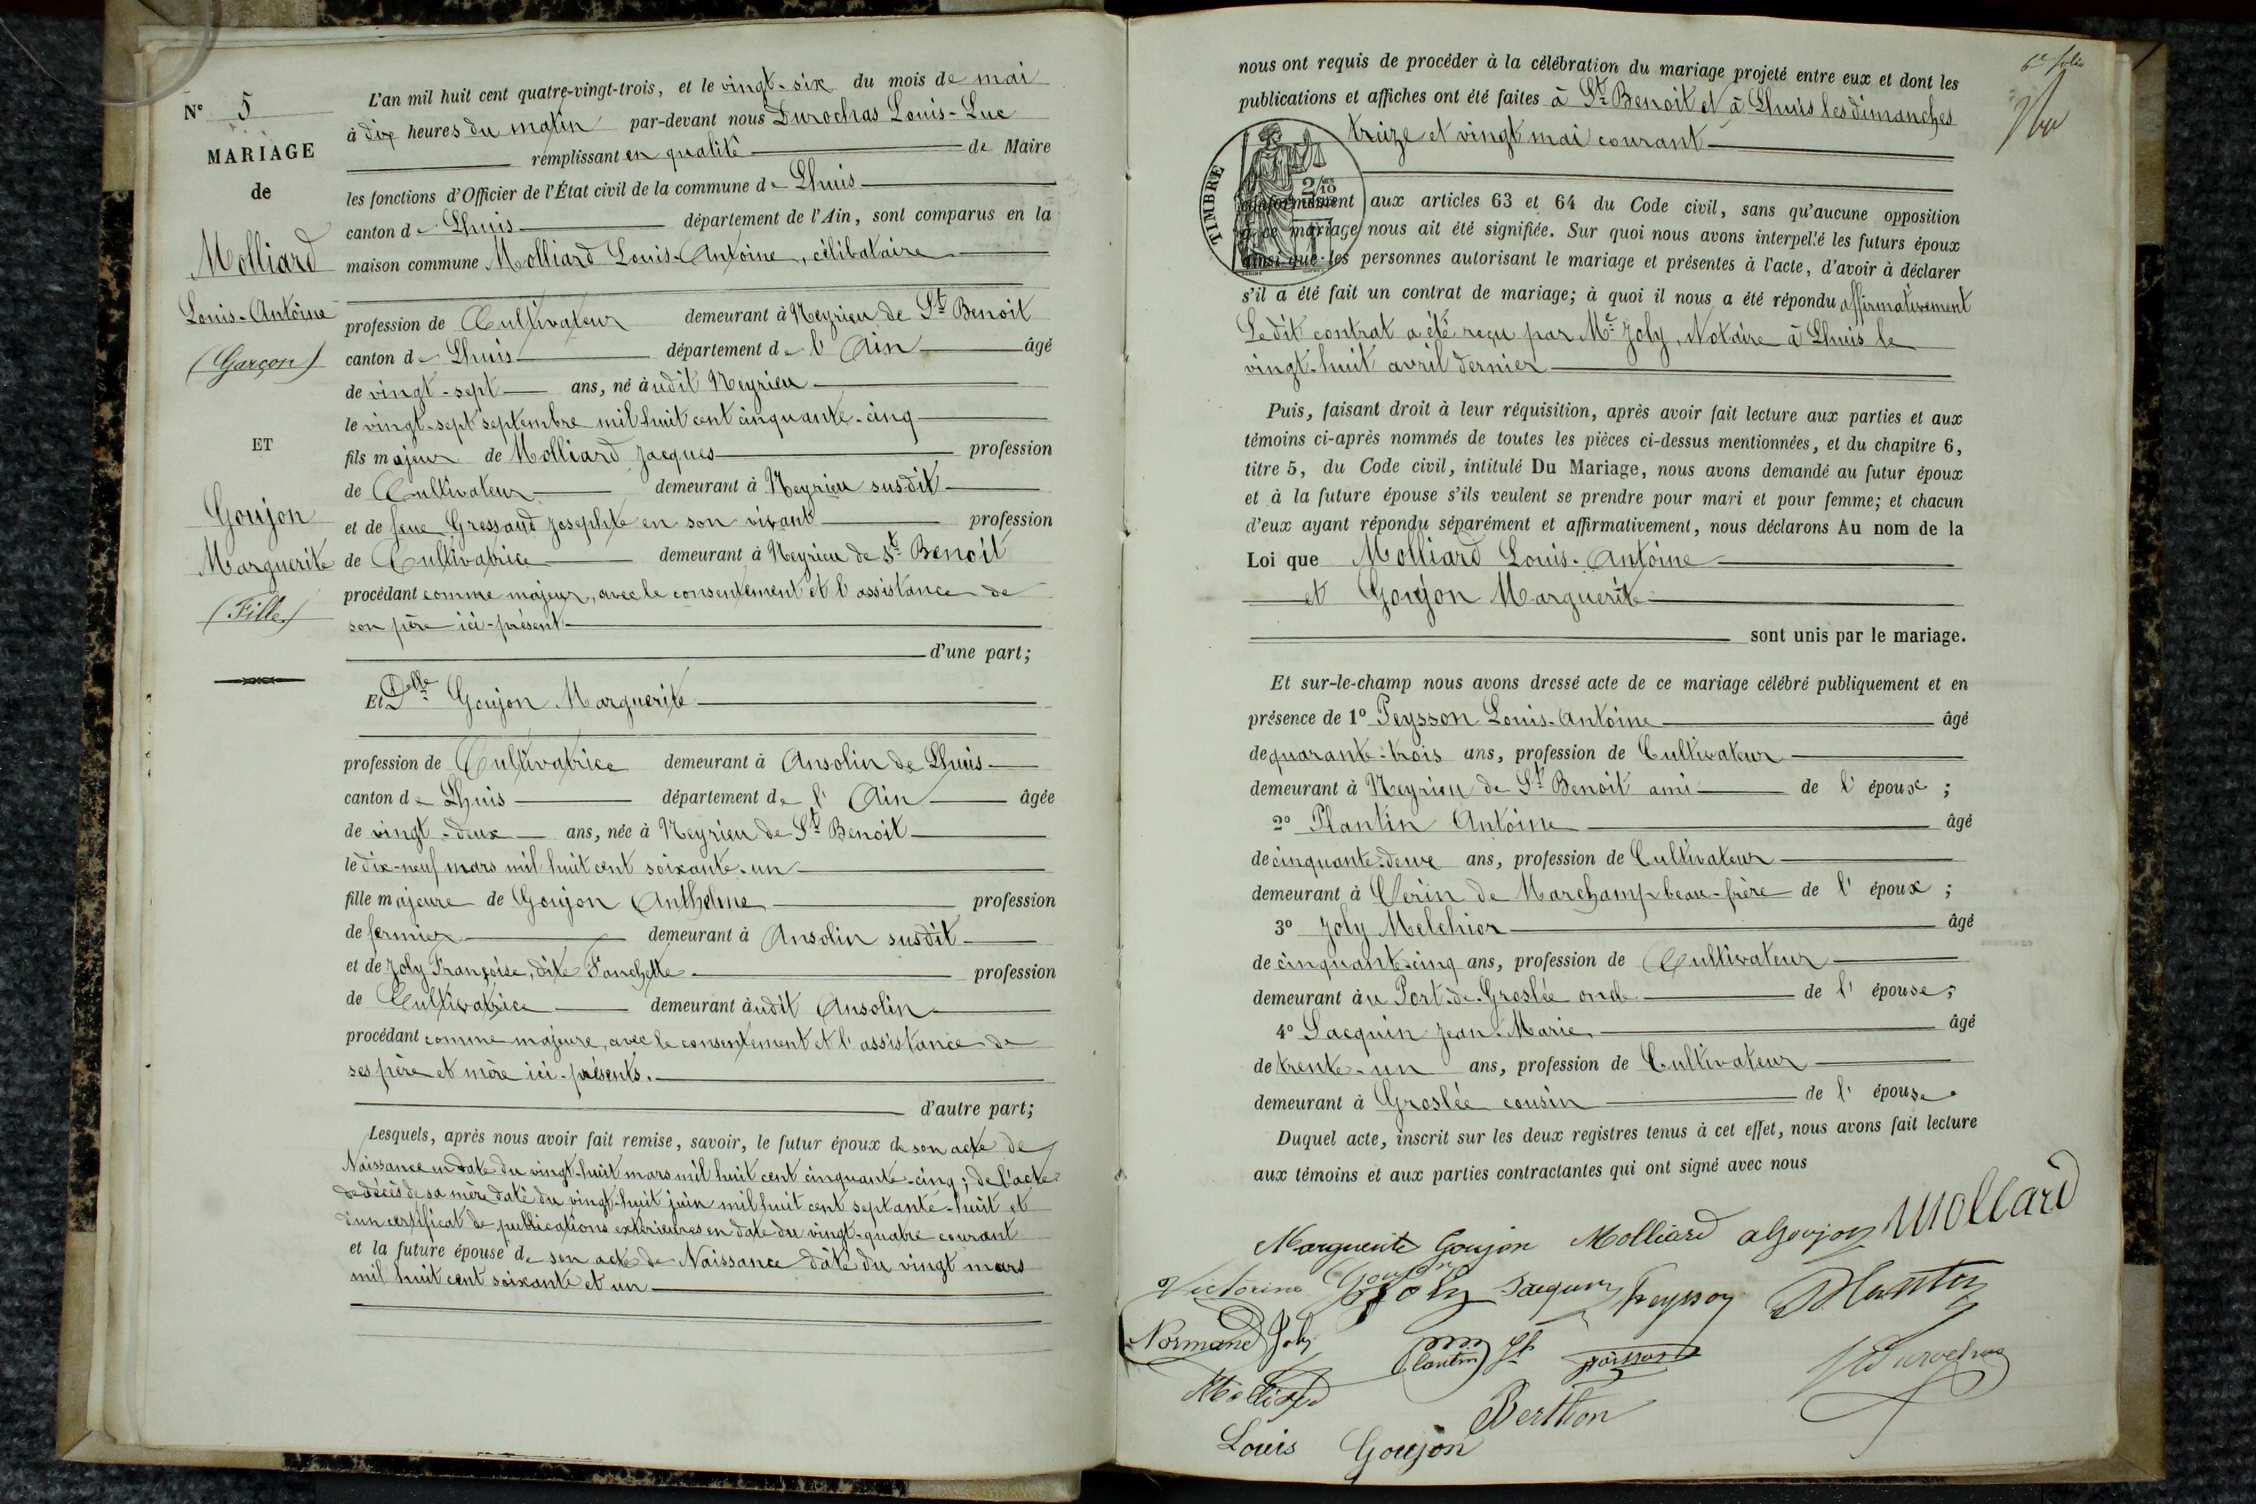 N° 5
MARIAGE
de
Molliard
Louis-Antoine
(Garçon)
ET
Goujon
Marguerite
(Fille)
L'an mil huit cent quatre-vingt-trois, et le vingt-six du mois de mai
à dix heures du matin par-devant nous Durochas Louis-Luc
remplissant en qualité de Maire
les fonctions d'Officier de l'État civil de la commune de Lhuis
canton de Lhuis département de l'Ain, sont comparus en la
maison commune Molliard Louis-Antoine, célibataire
profession de Cultivateur demeurant à Neyrieu de St Benoit
canton de Lhuis département de l'Ain âgé
de vingt-sept ans, né àudit Neyrieu
le vingt-sept septembre mil huit cent cinquante-cinq
fils majeur de Molliard Jacques profession
de Cultivateur demeurant à Neyrieu susdit
et de feue Gressaud Josephte en son vivant profession
de Cultivatrice demeurant à Neyrieu de St Benoit
procédant comme majeur, avec le consentement et l'assistance de
son père ici-présent
d'une part;
Et Delle Goujon Marguerite
profession de Cultivatrice demeurant à Ansolin de Lhuis
canton de Lhuis département de l'Ain âgée
de vingt-deux ans, née à Neyrieu de St Benoit
le dix-neuf mars mil huit cent soixante-un
fille majeure de Goujon Anthelme profession
de fermier demeurant à Ansolin susdit
et de Joly Françoise, dite Fanchette profession
de Cultivatrice demeurant àudit Ansolin
procédant comme majeure, avec le consentement et l'assistance de
ses père et mère ici-présents.
d'autre part;
Lesquels, après nous avoir fait remise, savoir, le futur époux de son acte de
Naissance en date du vingt-huit mars mil huit cent cinquante-cinq; de l'acte
de décès de sa mère daté du vingt-huit juin mil huit cent septante-huit et
d'un certificat de publications extérieures en date du vingt-quatre courant
et la future épouse de son acte de Naissance daté du vingt mars
mil huit cent soixante et un
6e folio
nous ont requis de procéder à la célébration du mariage projeté entre eux et dont les
publications et affiches ont été faites à St Benoit et à Lhuis les dimanches
treize et vingt mai courant
TIMBRE
2/10
conformément aux articles 63 et 64 du Code civil, sans qu'aucune opposition
à ce mariage nous ait été signifiée. Sur quoi nous avons interpellé les futurs époux
ainsi que les personnes autorisant le mariage et présentes à l'acte, d'avoir à déclarer
s'il a été fait un contrat de mariage; à quoi il nous a été répondu affirmativement
Ledit contrat a été reçu par Me Joly, Notaire à Lhuis le
vingt-huit avril dernier
Puis, faisant droit à leur réquisition, après avoir fait lecture aux parties et aux
témoins ci-après nommés de toutes les pièces ci-dessus mentionnées, et du chapitre 6,
titre 5, du Code civil, intitulé Du Mariage, nous avons demandé au futur époux
et à la future épouse s'ils veulent se prendre pour mari et pour femme; et chacun
d'eux ayant répondu séparément et affirmativement, nous déclarons Au nom de la
Loi que Molliard Louis-Antoine
et Goujon Marguerite
sont unis par le mariage.
Et sur-le-champ nous avons dressé acte de ce mariage célébré publiquement et en
présence de 1° Peysson Louis-Antoine âgé
de quarante-trois ans, profession de Cultivateur
demeurant à Neyrieu de St Benoit ami de l'épouse;
2° Plantin Antoine âgé
de cinquante-deux ans, profession de Cultivateur
demeurant à Cerin de Marchamp beau-frère de l'époux;
3° Joly Melchior âgé
de cinquante-cinq ans, profession de Cultivateur
demeurant àu Port-de-Groslée oncle de l'épouse;
4° Sacquin Jean-Marie âgé
de trente-un ans, profession de Cultivateur
demeurant à Groslée cousin de l'épouse
Duquel acte, inscrit sur les deux registres tenus à cet effet, nous avons fait lecture
aux témoins et aux parties contractantes qui ont signé avec nous
Marguerite Goujon Molliard aGoujon Mollard
Victorine Goujon Joly Sacquin Peysson Plantin
Normand Joly Plantin
Molliard Durochas
Berthon
Louis Goujon